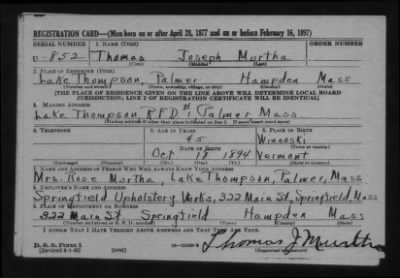 REGISTRATION CARD—(Men born on or after April 28, 1877 and on or before February 16, 1897)
SERIAL NUMBER 1. NAME (Print) ORDER NUMBER
U 852 Thomas Joseph Murtha
(First) (Middle) (Last)
2. PLACE OF RESIDENCE (Print)
Lake Thompson, Palmer Hampden Mass
(Number and street) (Town, township, village, or city) (County) (State)
[THE PLACE OF RESIDENCE GIVEN ON THE LINE ABOVE WILL DETERMINE LOCAL BOARD
JURISDICTION; LINE 2 OF REGISTRATION CERTIFICATE WILL BE IDENTICAL]
3. MAILING ADDRESS
Lake Thompson, RFD #1 Palmer Mass
[Mailing address if other than place indicated on line 2. If same insert word same]
4. TELEPHONE 5. AGE IN YEARS 6. PLACE OF BIRTH
Winooski
DATE OF BIRTH (Town or county)
Oct 1894 Vermont
(Exchange) (Number) (Mo.) (Day) (Yr.) (State or country)
7. NAME AND ADDRESS OF PERSON WHO WILL ALWAYS KNOW YOUR ADDRESS
Mrs. Rose Murtha, Lake Thompson, Palmer, Mass
8. EMPLOYER'S NAME AND ADDRESS
Springfield Upholstery Works, 322 Main St, Springfield, Mass
9. PLACE OF EMPLOYMENT OR BUSINESS
322 Main St. Springfield Hampden Mass
(Number and street or R. F. D. number) (Town) (County) (State)
I AFFIRM THAT I HAVE VERIFIED ABOVE ANSWERS AND THAT THEY ARE TRUE.
D. S. S. Form 1
(Revised 4-1-42)
Thomas J Murtha